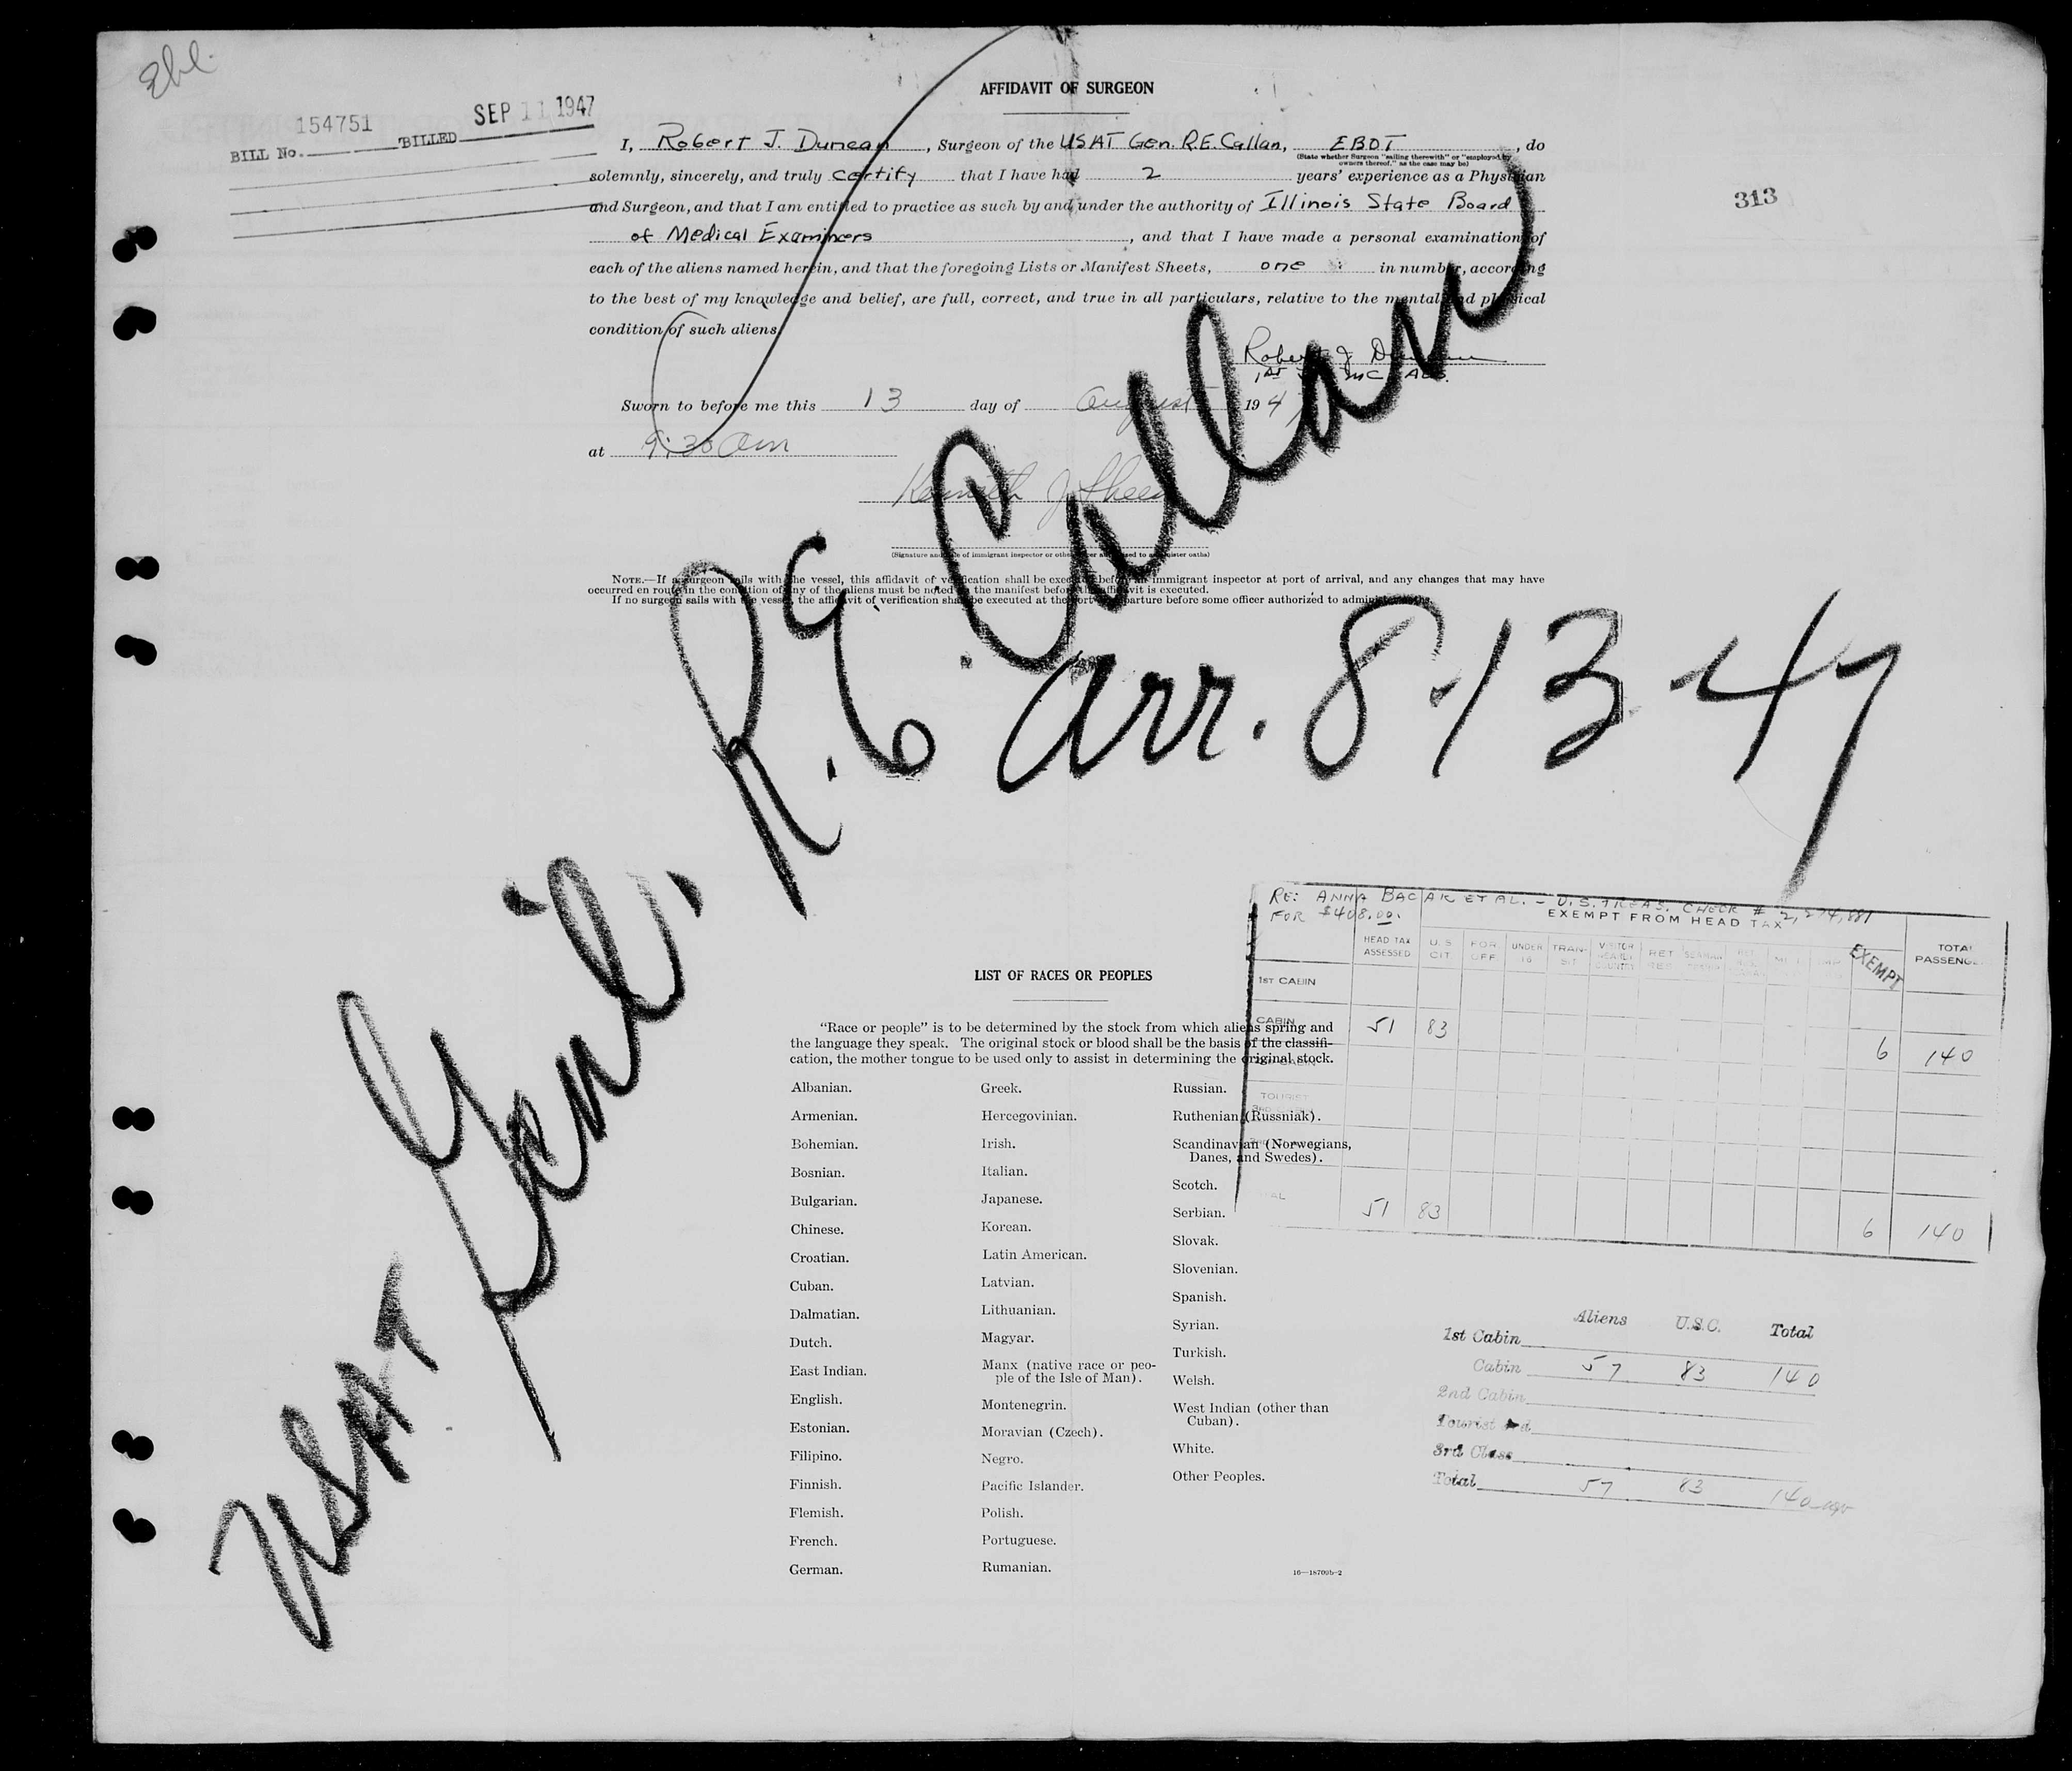 Ebl.
BILL No. 154751 BILLED SEP 11 1947
AFFIDAVIT OF SURGEON
313
I, Robert J. Duncan, Surgeon of the USAT Gen. R.E. Callan, EBOT, do
(State whether Surgeon "sailing therewith" or "employed by
owners thereof," as the case may be)
solemnly, sincerely, and truly certify that I have had 2 years' experience as a Physician
and Surgeon, and that I am entitled to practice as such by and under the authority of Illinois State Board
of Medical Examiners, and that I have made a personal examination of
each of the aliens named herein, and that the foregoing Lists or Manifest Sheets, one in number, according
to the best of my knowledge and belief, are full, correct, and true in all particulars, relative to the mental and physical
condition of such aliens.
Robert J Duncan
1st MC AUS.
Sworn to before me this 13 day of August 1947
at 9:30 am
Kenneth J
(Signature and title of immigrant inspector or other officer authorized to administer oaths)
NOTE.—If a surgeon sails with the vessel, this affidavit of verification shall be executed before an immigrant inspector at port of arrival, and any changes that may have
occurred en route in the condition of any of the aliens must be noted on the manifest before the affidavit is executed.
If no surgeon sails with the vessel, the affidavit of verification shall be executed at the port of departure before some officer authorized to administer oaths.
USAT Genl. R.E. Callan
arr. 8-13-47
RE: ANNA BACAR ET AL. - U.S. TREAS. CHECK # 2,274,881
FOR $408.00.
EXEMPT FROM HEAD TAX
HEAD TAX ASSESSED U.S CIT FOR OFF UNDER 16 TRAN-SIT VISITOR COUNTRY RET EXEMPT TOTAL PASSENG
1ST CABIN
CABIN 51 83 6 140
TOURIST
51 83 6 140
LIST OF RACES OR PEOPLES
"Race or people" is to be determined by the stock from which aliens spring and
the language they speak. The original stock or blood shall be the basis of the classifi-
cation, the mother tongue to be used only to assist in determining the original stock.
Albanian.
Armenian.
Bohemian.
Bosnian.
Bulgarian.
Chinese.
Croatian.
Cuban.
Dalmatian.
Dutch.
East Indian.
English.
Estonian.
Filipino.
Finnish.
Flemish.
French.
German.
Greek.
Hercegovinian.
Irish.
Italian.
Japanese.
Korean.
Latin American.
Latvian.
Lithuanian.
Magyar.
Manx (native race or peo-
ple of the Isle of Man).
Montenegrin.
Moravian (Czech).
Negro.
Pacific Islander.
Polish.
Portuguese.
Rumanian.
Russian.
Ruthenian (Russniak).
Scandinavian (Norwegians,
Danes, and Swedes).
Scotch.
Serbian.
Slovak.
Slovenian.
Spanish.
Syrian.
Turkish.
Welsh.
West Indian (other than
Cuban).
White.
Other Peoples.
16—18709b-2
Aliens U.S.C. Total
1st Cabin
Cabin 57 83 140
2nd Cabin
Tourist 3rd
3rd Class
Total 57 83 140